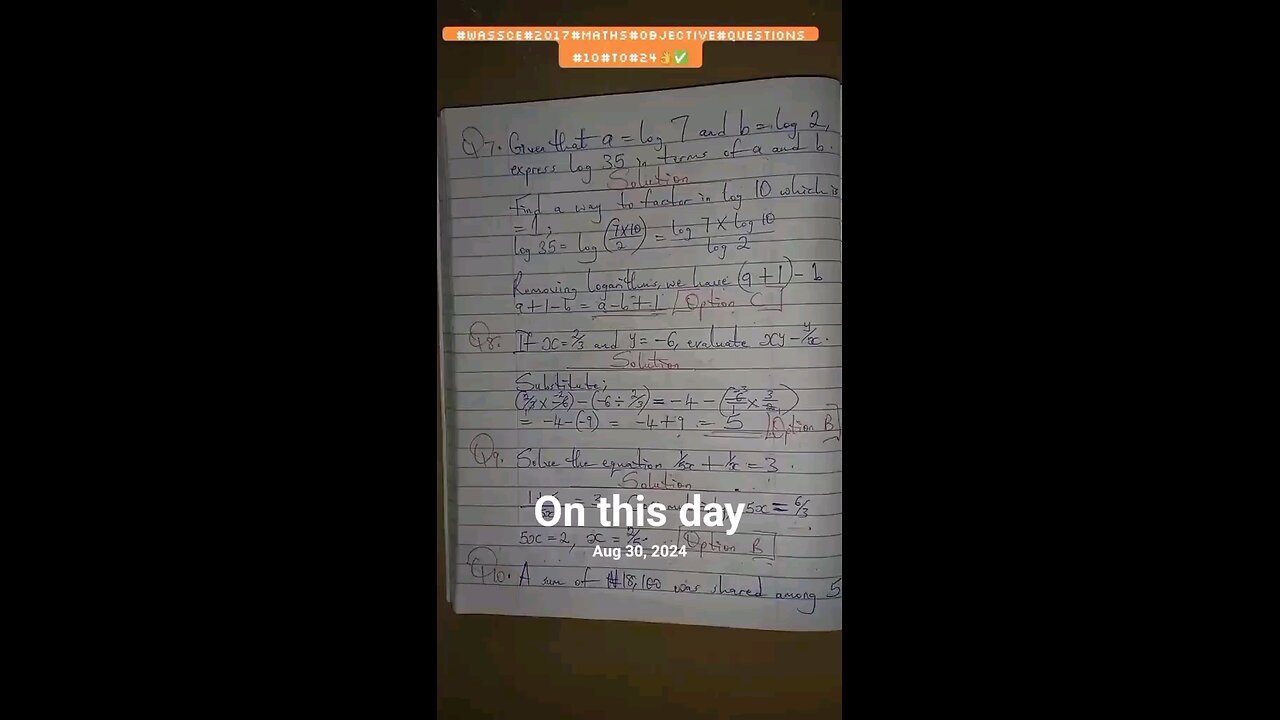 #WASSCE#2017#MATHS#OBJECTIVE#QUESTIONS
#10#TO#24👌✅
Q7. Given that a = log 7 and b = log 2,
express log 35 in terms of a and b.
Solution
Find a way to factor in log 10 which is
= 1;
log 35 = log (7×10/2) = log 7 × log 10 / log 2
Removing logarithms, we have (a + 1) - b
a + 1 - b = a - b + 1 Option C
Q8. If x = 2/3 and y = -6, evaluate xy - y/x.
Solution
Substitute;
(2/3 × -6) - (-6 ÷ 2/3) = -4 - (-6/1 × 3/2)
= -4 - (-9) = -4 + 9 = 5 Option B
Q9. Solve the equation 1/5x + 1/x = 3.
Solution
5x = 6/3
On this day
5x = 2, x = 2/5 Option B
Aug 30, 2024
Q10. A sum of ₦18,100 was shared among 5